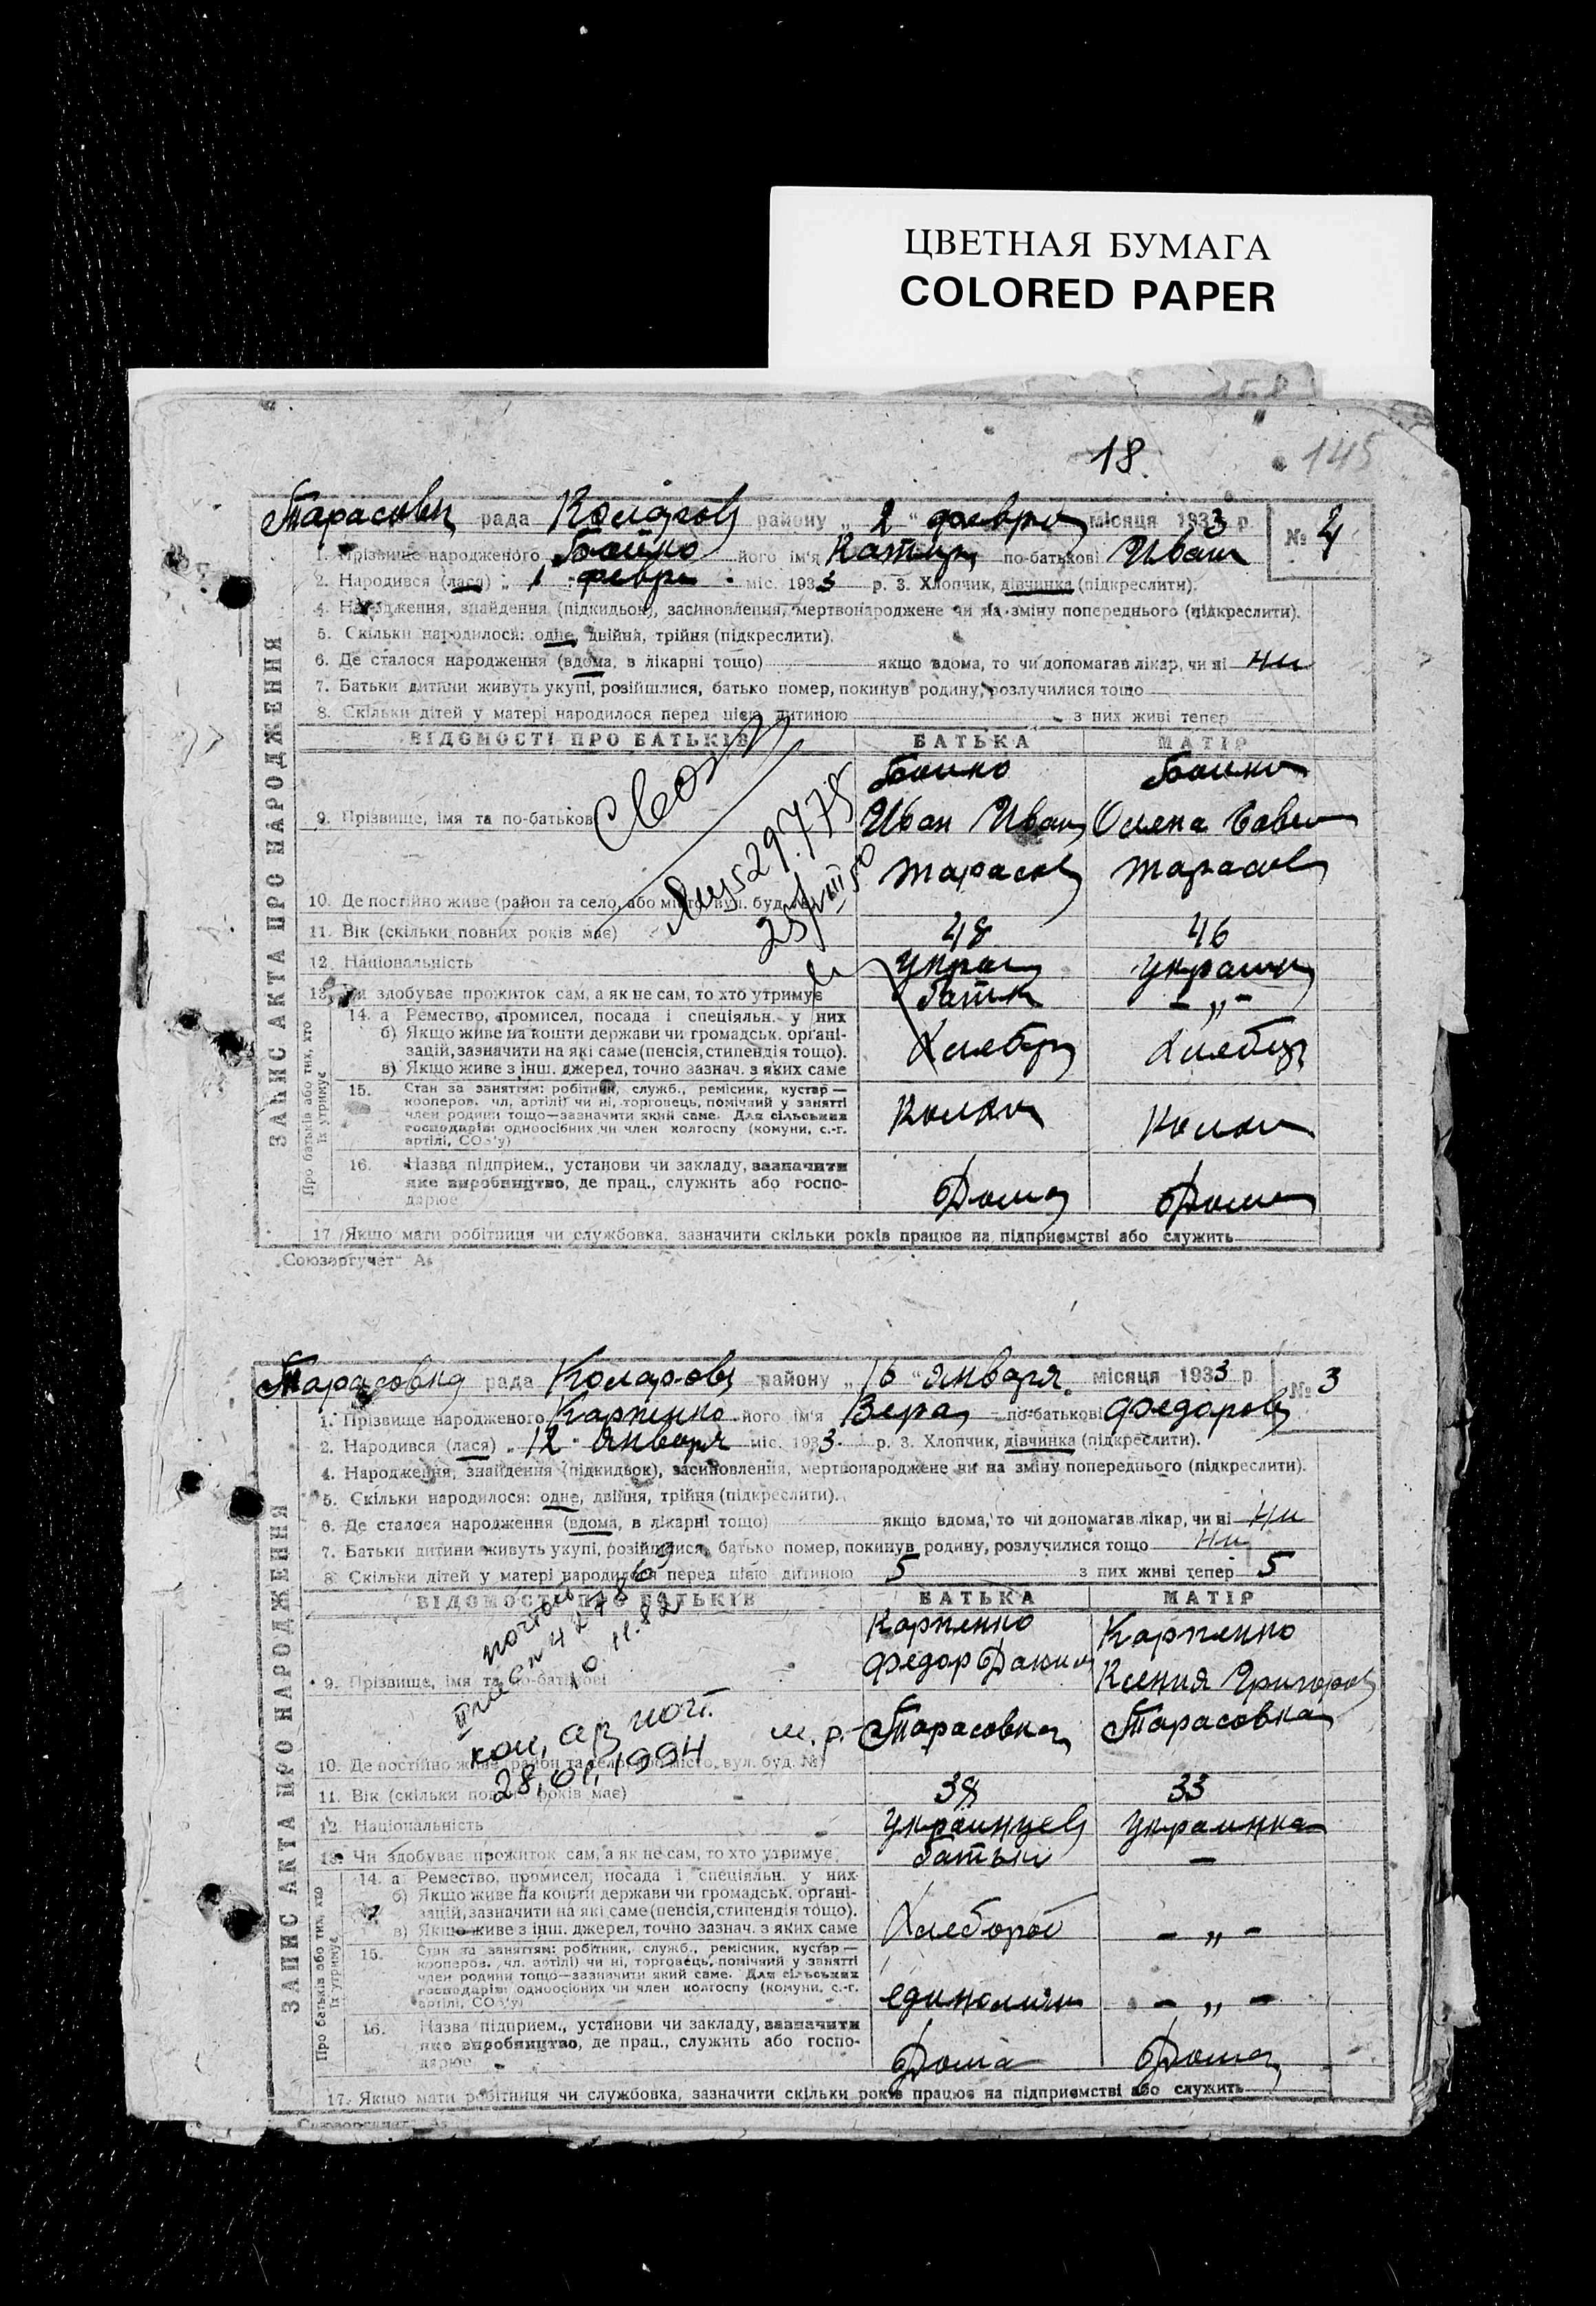 ЦВЕТНАЯ БУМАГА
COLORED PAPER
158
18.
145
Тарасовк рада Комаров району „ 2 “ февра місяця 1933 р. № 4
1. Прізвище народженого Бойко його ім'я Катер по-батькові Иван
2. Народився (лася) „ 1 февра міс. 1933 р. 3. Хлопчик, дівчинка (підкреслити).
4. Народження, знайдення (підкидьок), засиновлення, мертвонароджене чи на зміну попереднього (підкреслити).
5. Скільки народилося: одне, двійня, трійня (підкреслити).
6. Де сталося народження (вдома, в лікарні тощо) якщо вдома, то чи допомагав лікар, чи ні Ни
7. Батьки дитини живуть укупі, розійшлися, батько помер, покинув родину, розлучилися тощо
8. Скільки дітей у матері народилося перед цією дитиною з них живі тепер
ВІДОМОСТІ ПРО БАТЬКІВ БАТЬКА МАТІР
ЗАПИС АКТА ПРО НАРОДЖЕННЯ
Бойко Бойко
9. Прізвище, імя та по-батькові Иван Иван Олена
Тарасов Тарасов
10. Де постійно живе (район та село, або місто, вул. буд. №)
11. Вік (скільки повних років має) 48 46
12. Національність Украи Украин
13. Чи здобуває прожиток сам, а як не сам, то хто утримує батьк - „ -
Про батьків або тих, хто їх утримує
14. а Ремество, промисел, посада і спеціяльн. у них
б) Якщо живе на кошти держави чи громадськ. органі-
зацій, зазначити на які саме (пенсія, стипендія тощо). Хлебор Хлебор
в) Якщо живе з інш. джерел, точно зазнач. з яких саме
15. Стан за заняттям: робітник, служб., ремісник, кустар —
кооперов. чл. артілі чи ні, торговець, помічний у занятті
член родини тощо—зазначити який саме. Для сільських
господарів: одноосібних чи член колгоспу (комуни, с.-г.
артілі, СОЗ'у) Колхоз Колхоз
16. Назва підприєм., установи чи закладу, зазначити
яке виробництво, де прац., служить або госпо-
дарює Дома Дома
17. Якщо мати робітниця чи службовка, зазначити скільки років працює на підприємстві або служить
„Союзоргучет“
Тарасовка рада Комаров району „ 16 “ января місяця 1933 р. № 3
1. Прізвище народженого Карпенко його ім'я Вера по-батькові Федоров
2. Народився (лася) „ 12 января міс. 1933 р. 3. Хлопчик, дівчинка (підкреслити).
4. Народження, знайдення (підкидьок), засиновлення, мертвонароджене чи на зміну попереднього (підкреслити).
5. Скільки народилося: одне, двійня, трійня (підкреслити).
6. Де сталося народження (вдома, в лікарні тощо) якщо вдома, то чи допомагав лікар, чи ні Ни
7. Батьки дитини живуть укупі, розійшлися, батько помер, покинув родину, розлучилися тощо Ни
8. Скільки дітей у матері народилося перед цією дитиною 5 з них живі тепер 5
ВІДОМОСТІ ПРО БАТЬКІВ БАТЬКА МАТІР
ЗАПИС АКТА ПРО НАРОДЖЕННЯ
10.11.82
28,01,1994
Карпенко Карпенко
9. Прізвище, імя та по-батькові Федор Ксения Григоров
Тарасовка Тарасовка
10. Де постійно живе (район та село, або місто, вул. буд. №)
11. Вік (скільки повних років має) 38 33
12. Національність Украинцев Украинка
13. Чи здобуває прожиток сам, а як не сам, то хто утримує батьки -
Про батьків або тих, хто їх утримує
14. а Ремество, промисел, посада і спеціяльн. у них
б) Якщо живе на кошти держави чи громадськ. органі-
зацій, зазначити на які саме (пенсія, стипендія тощо).
в) Якщо живе з інш. джерел, точно зазнач. з яких саме Хлебороб - „ -
15. Стан за заняттям: робітник, служб., ремісник, кустар —
кооперов. чл. артілі) чи ні, торговець, помічний у занятті
член родини тощо—зазначити який саме. Для сільських
господарів: одноосібних чи член колгоспу (комуни, с.-г.
артілі, СОЗ'у) единолични - „ -
16. Назва підприєм., установи чи закладу, зазначити
яке виробництво, де прац., служить або госпо-
дарює Дома Дома
17. Якщо мати робітниця чи службовка, зазначити скільки років працює на підприємстві або служить